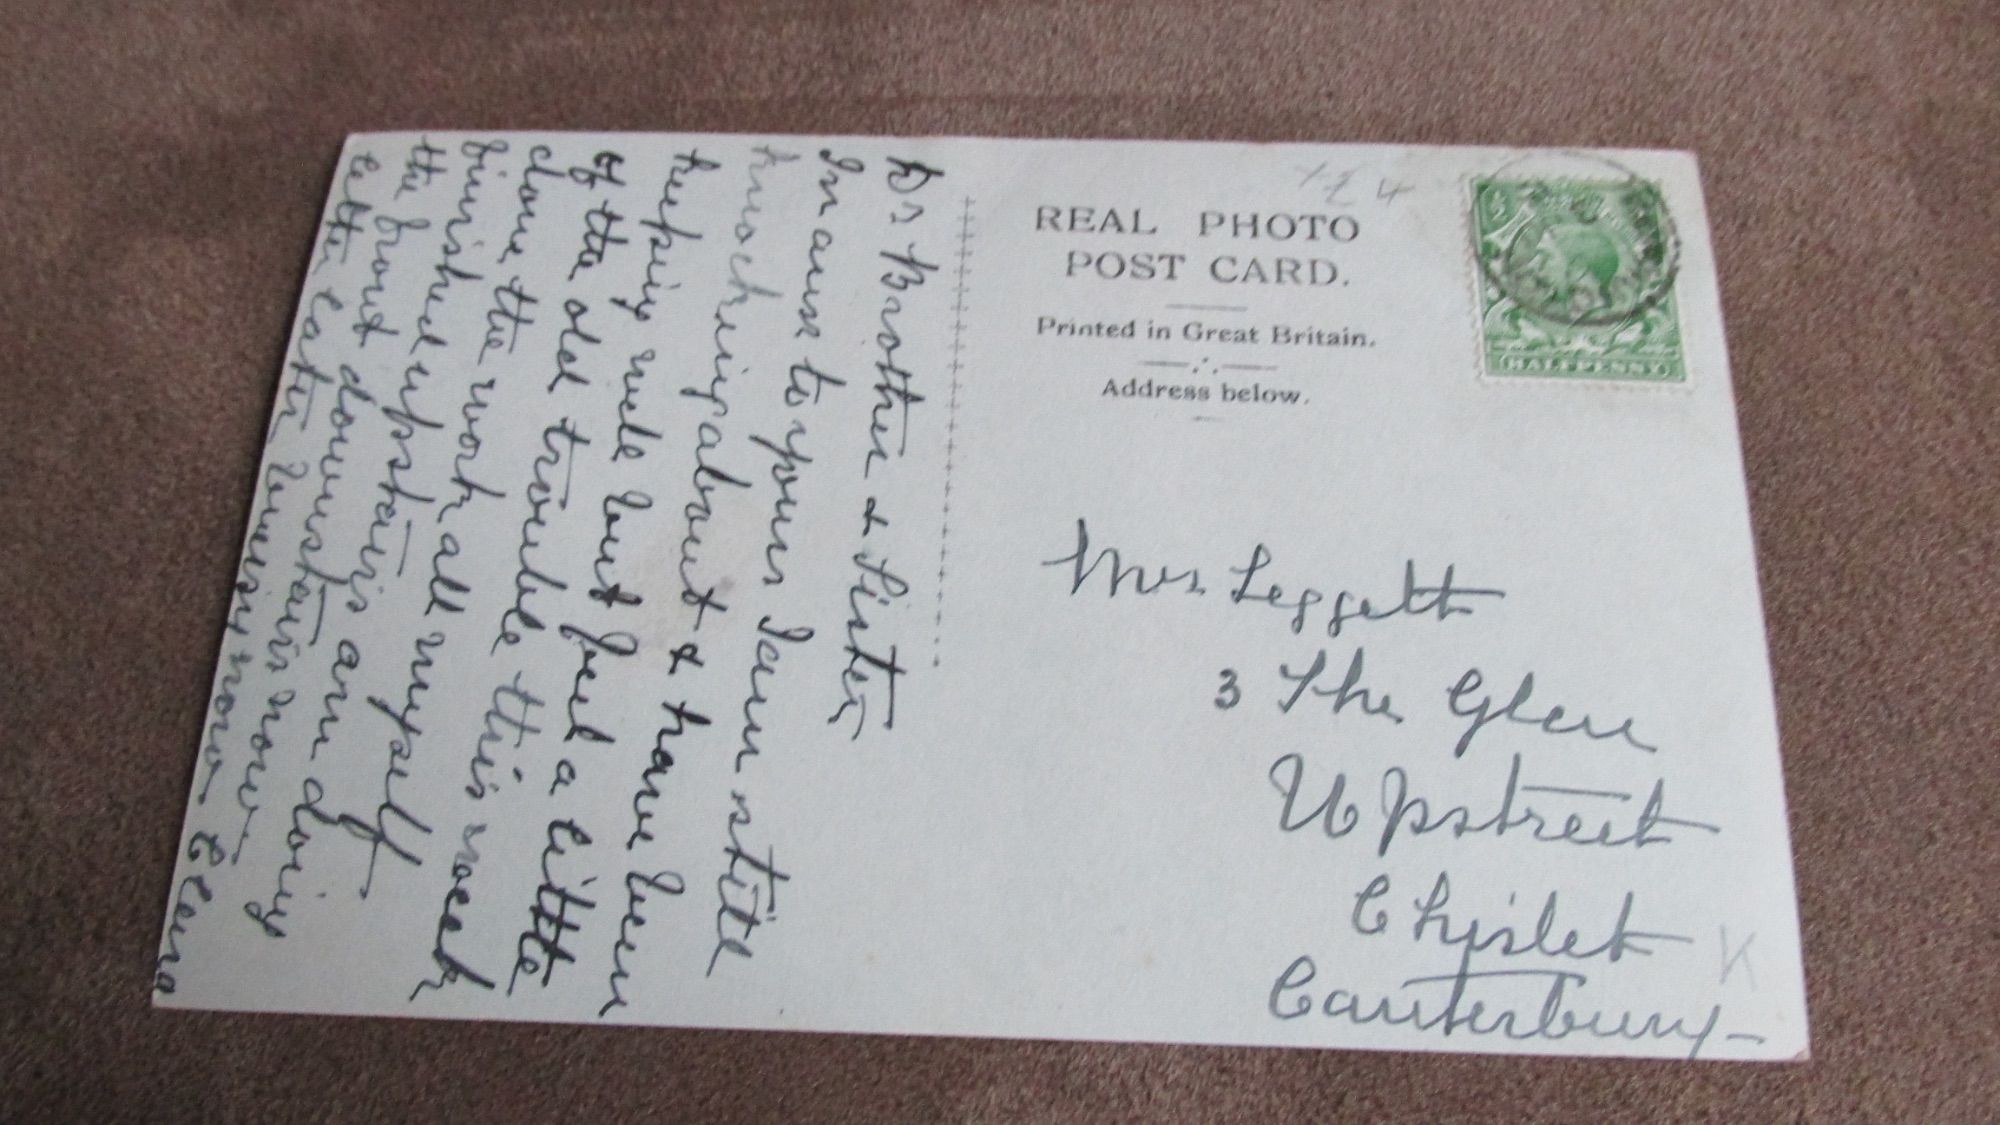 Dr Brother & Sister
In answ to yours I am still
knocking about &
keeping well but have been
feel a little
of the old trouble this week
done the work all myself
finished upstairs
the front downstairs am doing
letter later
busy now Elena
REAL PHOTO
POST CARD.
Printed in Great Britain.
Address below.
HALFPENNY
Mrs Leggett
3 The Glen
Upstreet
Chislet
Canterbury